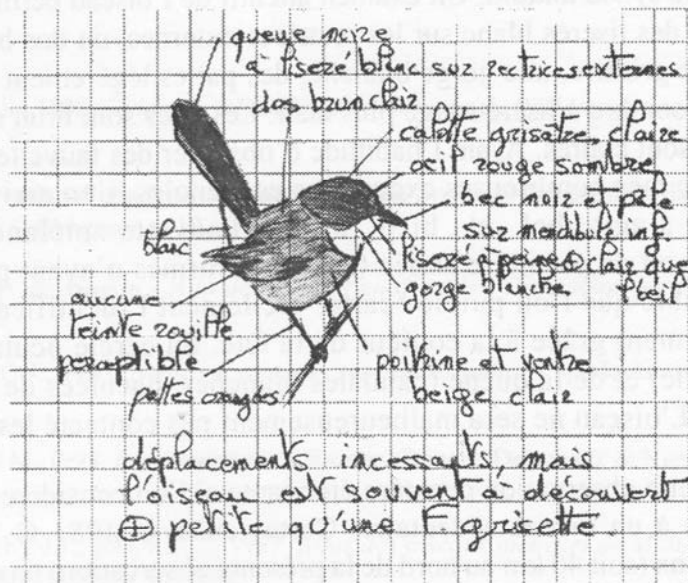 queue noire
à liseré blanc sur rectrices externes
dos brun clair
calotte grisâtre claire
oeil rouge sombre
bec noir et pâle
sur mandibule inf.
blanc
liseré à peine ⊕ clair que
l'oeil
gorge blanche
aucune
teinte rouille
perceptible
pattes orangées
poitrine et ventre
beige clair
déplacements incessants, mais
l'oiseau est souvent à découvert
⊕ petite qu'une F. gricette.